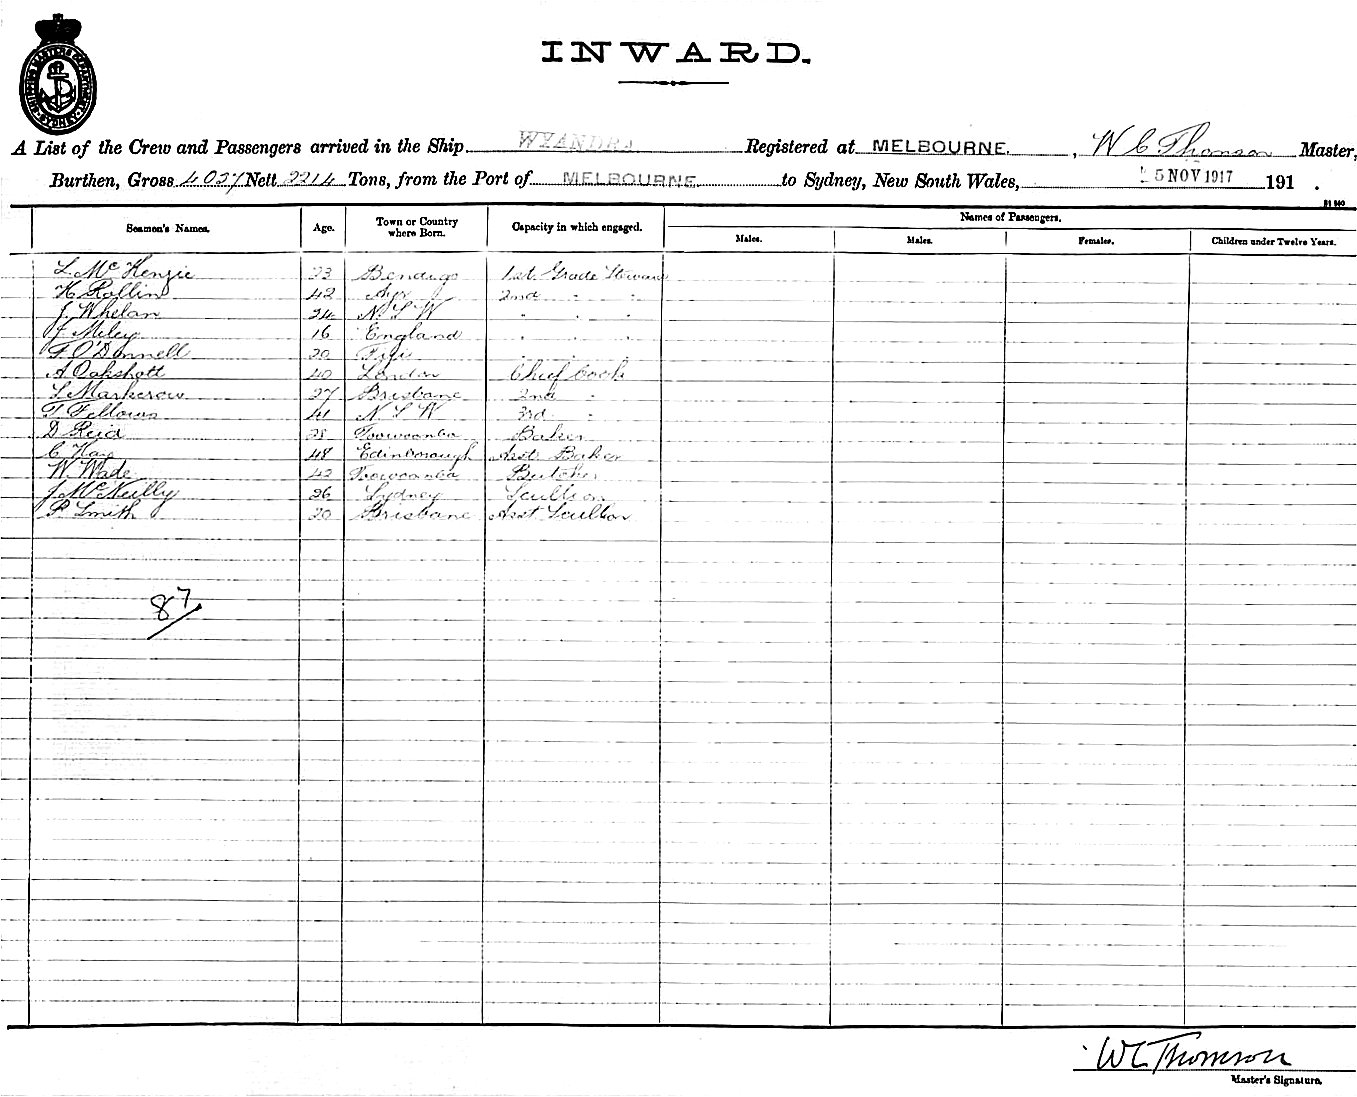 INWARD.
SHIPPING MASTERS DEPARTMENT SYDNEY
A List of the Crew and Passengers arrived in the Ship WYANDRA Registered at MELBOURNE. , W C Thomson Master,
Burthen, Gross 4027 Nett 2214 Tons, from the Port of MELBOURNE to Sydney, New South Wales, 25 NOV 1917 191 .
Seamen's Names. Age. Town or Country where Born. Capacity in which engaged. Names of Passengers.
Males. Males. Females. Children under Twelve Years.
L McKenzie 23 Bendigo 1st Grade Steward
H Rollin 42 Ayr 2nd " "
J. Whelan 24 N S W " " "
J Miley 16 England " " "
F O'Donnell 20 Fiji
A Oakshott 40 London Chief Cook
L Markcrow 27 Brisbane 2nd "
T Fellows 41 N S W 3rd "
D Reid 28 Toowoomba Baker
C Hay 48 Edinborough Asst Baker
W. Wade 42 Toowoomba Butcher
J McNeilly 26 Sydney Scullion
P Smith 20 Brisbane Asst Scullion
87
W C Thomson
Master's Signature.